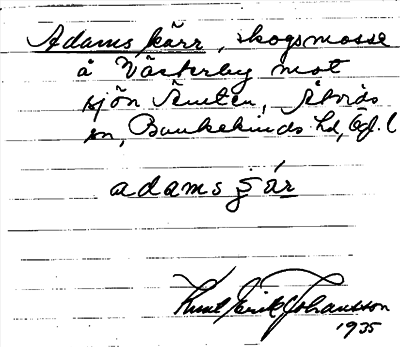 Adams kärr, skogsmosse
å Västerby mot
sjön Ämten, Åtvids
sn, Bankekinds hd, Ögl.
adams ş ár
Knut Erik Johansson
1935